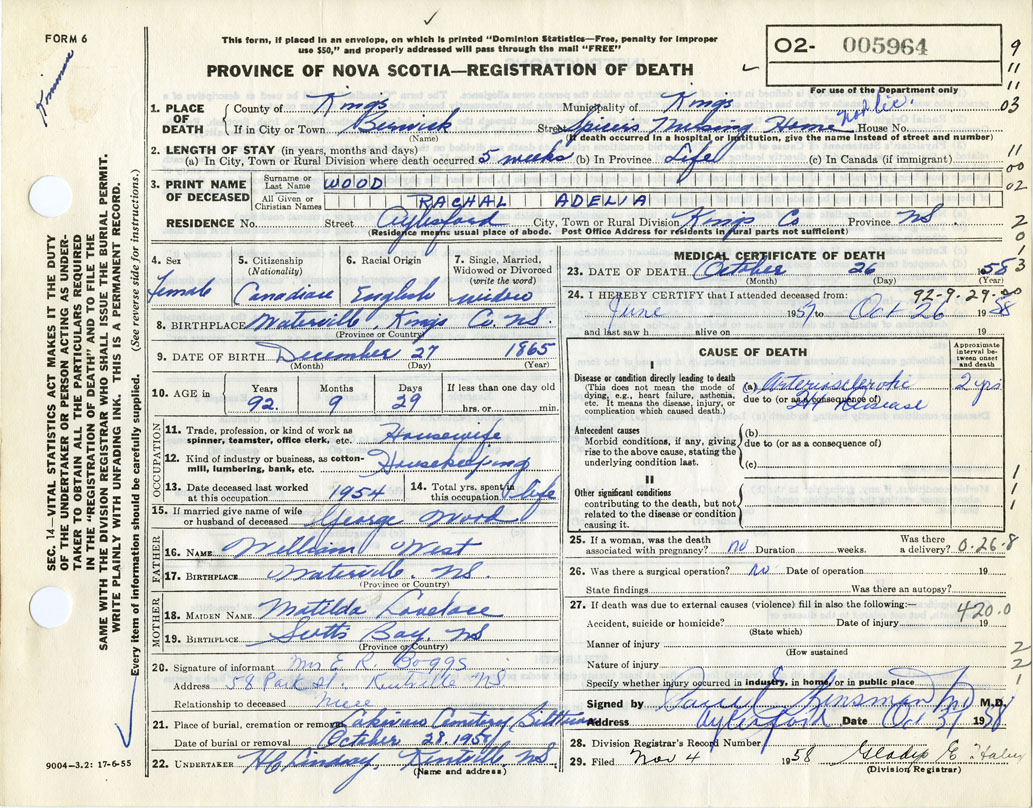 FORM 6
Kinsman
This form, if placed in an envelope, on which is printed "Dominion Statistics—Free, penalty for improper
use $50," and properly addressed will pass through the mail "FREE"
PROVINCE OF NOVA SCOTIA—REGISTRATION OF DEATH
O2- 005964
For use of the Department only
9
11
11
03
1. PLACE OF DEATH
County of Kings Municipality of Kings
If in City or Town Berwick Street Spicers Nursing Home not lic. House No.
(Name) (If death occurred in a hospital or institution, give the name instead of street and number)
2. LENGTH OF STAY (in years, months and days)
(a) In City, Town or Rural Division where death occurred 5 weeks (b) In Province Life (c) In Canada (if immigrant)
11
00
02
3. PRINT NAME OF DECEASED
Surname or Last Name WOOD
All Given or Christian Names RACHAL ADELIA
RESIDENCE No. Street Aylesford City, Town or Rural Division Kings Co Province NS
(Residence means usual place of abode. Post Office Address for residents in rural parts not sufficient)
2
0
0
3
4. Sex Female
5. Citizenship (Nationality) Canadian
6. Racial Origin English
7. Single, Married, Widowed or Divorced (write the word) widow
8. BIRTHPLACE Waterville, Kings Co. NS.
(Province or Country)
9. DATE OF BIRTH December 27 1865
(Month) (Day) (Year)
10. AGE in Years 92. Months 9 Days 29 If less than one day old hrs. or min.
OCCUPATION
11. Trade, profession, or kind of work as spinner, teamster, office clerk, etc. Housewife
12. Kind of industry or business, as cotton-mill, lumbering, bank, etc. Housekeeping
13. Date deceased last worked at this occupation 1954
14. Total yrs. spent in this occupation life
15. If married give name of wife or husband of deceased George Wood
FATHER
16. NAME William West
17. BIRTHPLACE Waterville, NS.
(Province or Country)
MOTHER
18. MAIDEN NAME Matilda Lovelace
19. BIRTHPLACE Scotts Bay, NS
(Province or Country)
20. Signature of informant Mrs E. R. Boggs
Address 58 Park St. Kentville NS
Relationship to deceased niece
21. Place of burial, cremation or removal Lakeview Cemetery,
Date of burial or removal October 28. 1958
22. UNDERTAKER H C Lindsay, Kentville, NS
(Name and address)
MEDICAL CERTIFICATE OF DEATH
23. DATE OF DEATH October 26 1958
(Month) (Day) (Year)
24. I HEREBY CERTIFY that I attended deceased from: 92-9-29-00
June 1957 to Oct 26 1958
and last saw h alive on 19
CAUSE OF DEATH
Approximate interval between onset and death
I
Disease or condition directly leading to death
(This does not mean the mode of dying, e.g., heart failure, asthenia, etc. It means the disease, injury, or complication which caused death.)
(a) Arteriosclerotic 2 yrs
due to (or as a consequence of)
Ht Disease
Antecedent causes
Morbid conditions, if any, giving rise to the above cause, stating the underlying condition last.
(b)
due to (or as a consequence of)
(c)
II
Other significant conditions
contributing to the death, but not related to the disease or condition causing it.
1
1
1
1
25. If a woman, was the death associated with pregnancy? no Duration weeks. Was there a delivery? 0-26-8
26. Was there a surgical operation? no Date of operation 19
State findings Was there an autopsy?
27. If death was due to external causes (violence) fill in also the following:— 420.0
Accident, suicide or homicide? Date of injury 19
(State which)
Manner of injury
(How sustained
Nature of injury
Specify whether injury occurred in industry, in home, or in public place
2
2
1
Signed by Kinsman MD M.D.
Address Aylesford Date Oct 31 1958
28. Division Registrar's Record Number
29. Filed Nov 4 1958 Gladys E. Haley
(Division Registrar)
SEC. 14—VITAL STATISTICS ACT MAKES IT THE DUTY
OF THE UNDERTAKER OR PERSON ACTING AS UNDER-
TAKER TO OBTAIN ALL THE PARTICULARS REQUIRED
IN THE "REGISTRATION OF DEATH" AND TO FILE THE
SAME WITH THE DIVISION REGISTRAR WHO SHALL ISSUE THE BURIAL PERMIT.
WRITE PLAINLY WITH UNFADING INK. THIS IS A PERMANENT RECORD.
Every item of information should be carefully supplied. (See reverse side for instructions.)
9004—3.2: 17-6-55